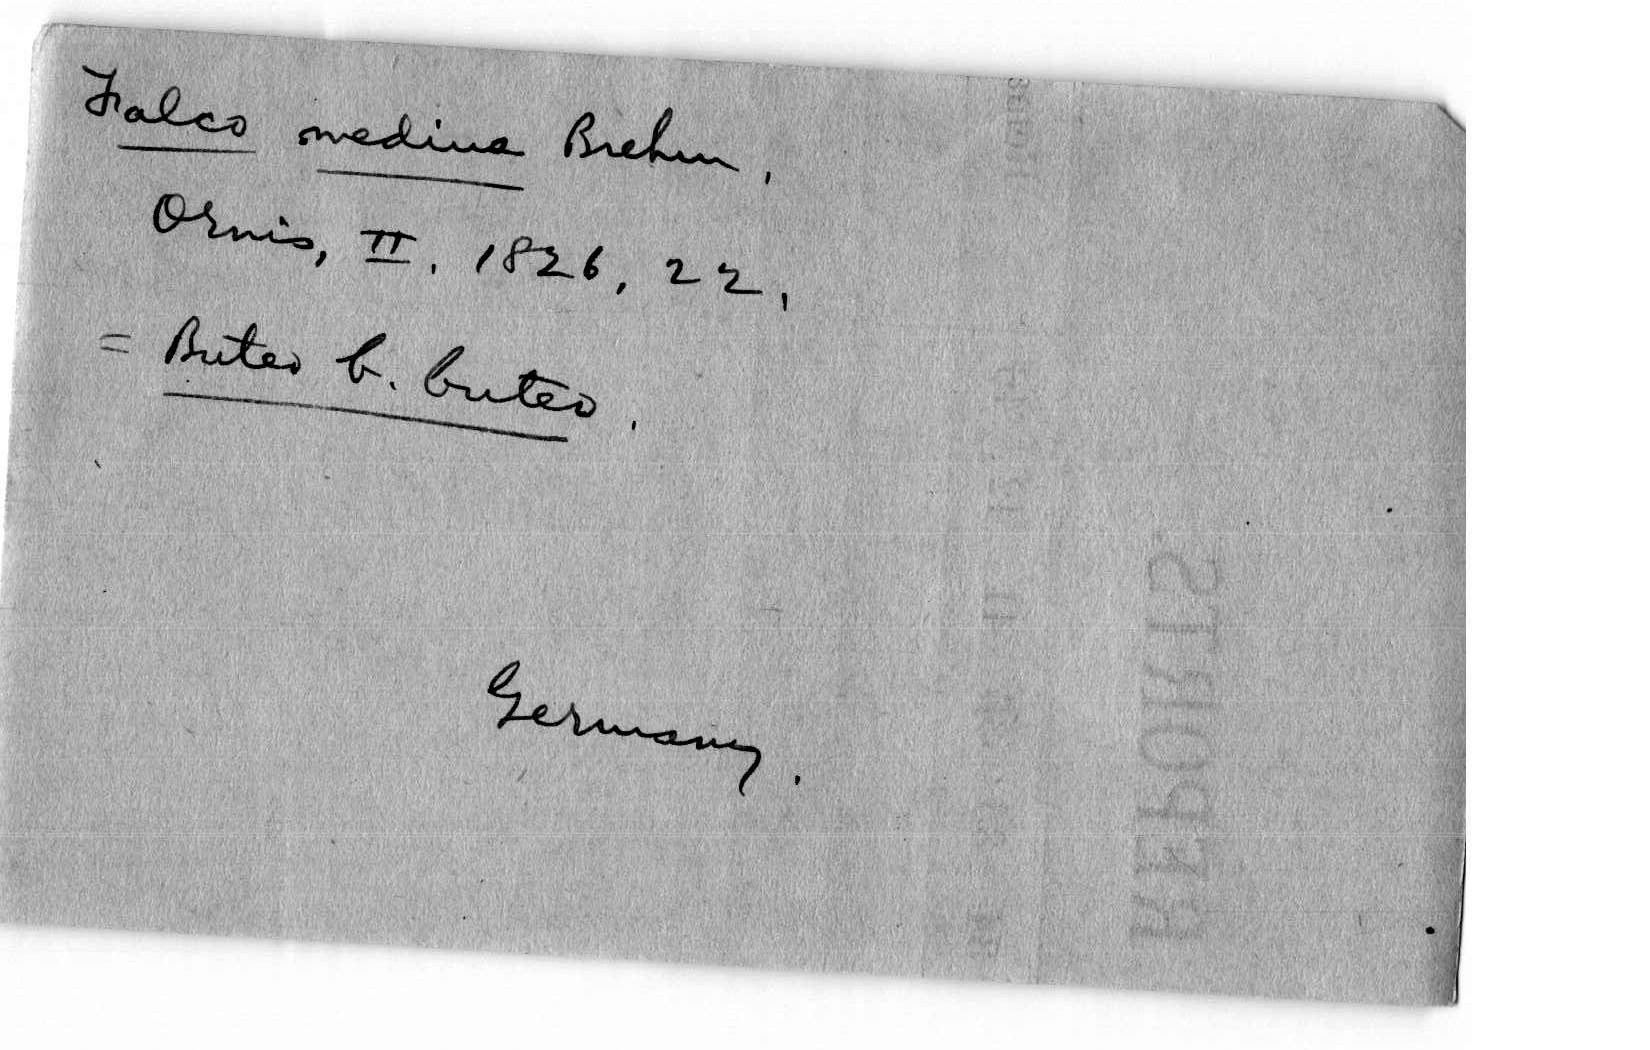 Falco medius Brehm,
Ornis, II. 1826, 22,
= Buteo b. buteo.
Germany.
REPORTS